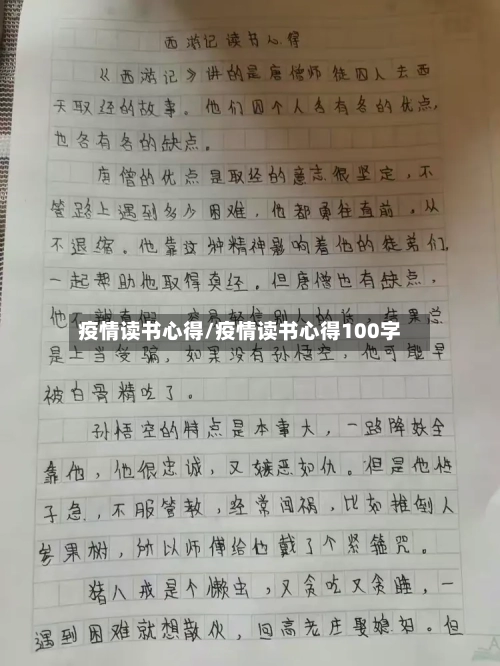 西游记读书心得
《西游记》讲的是唐僧师徒四人去西
天取经的故事。他们四个人各有各的优点,
也各有各的缺点。
唐僧的优点是取经的意志很坚定,不
管路上遇到多少困难,他都勇往直前,从
不退缩。他靠这种精神影响着他的徒弟们,
一起帮助他取得真经。但唐僧也有缺点,
疫情读书心得/疫情读书心得100字
是上当受骗,如果没有孙悟空,他可能早
被白骨精吃了。
孙悟空的特点是本事大,一路降妖全
靠他,他很忠诚,又嫉恶如仇。但是他性
子急,不服管教,经常闯祸,比如推倒人
参果树,所以师傅给他戴了个紧箍咒。
猪八戒是个懒虫,又贪吃又贪睡,一
遇到困难就想散伙,回高老庄娶媳妇。但